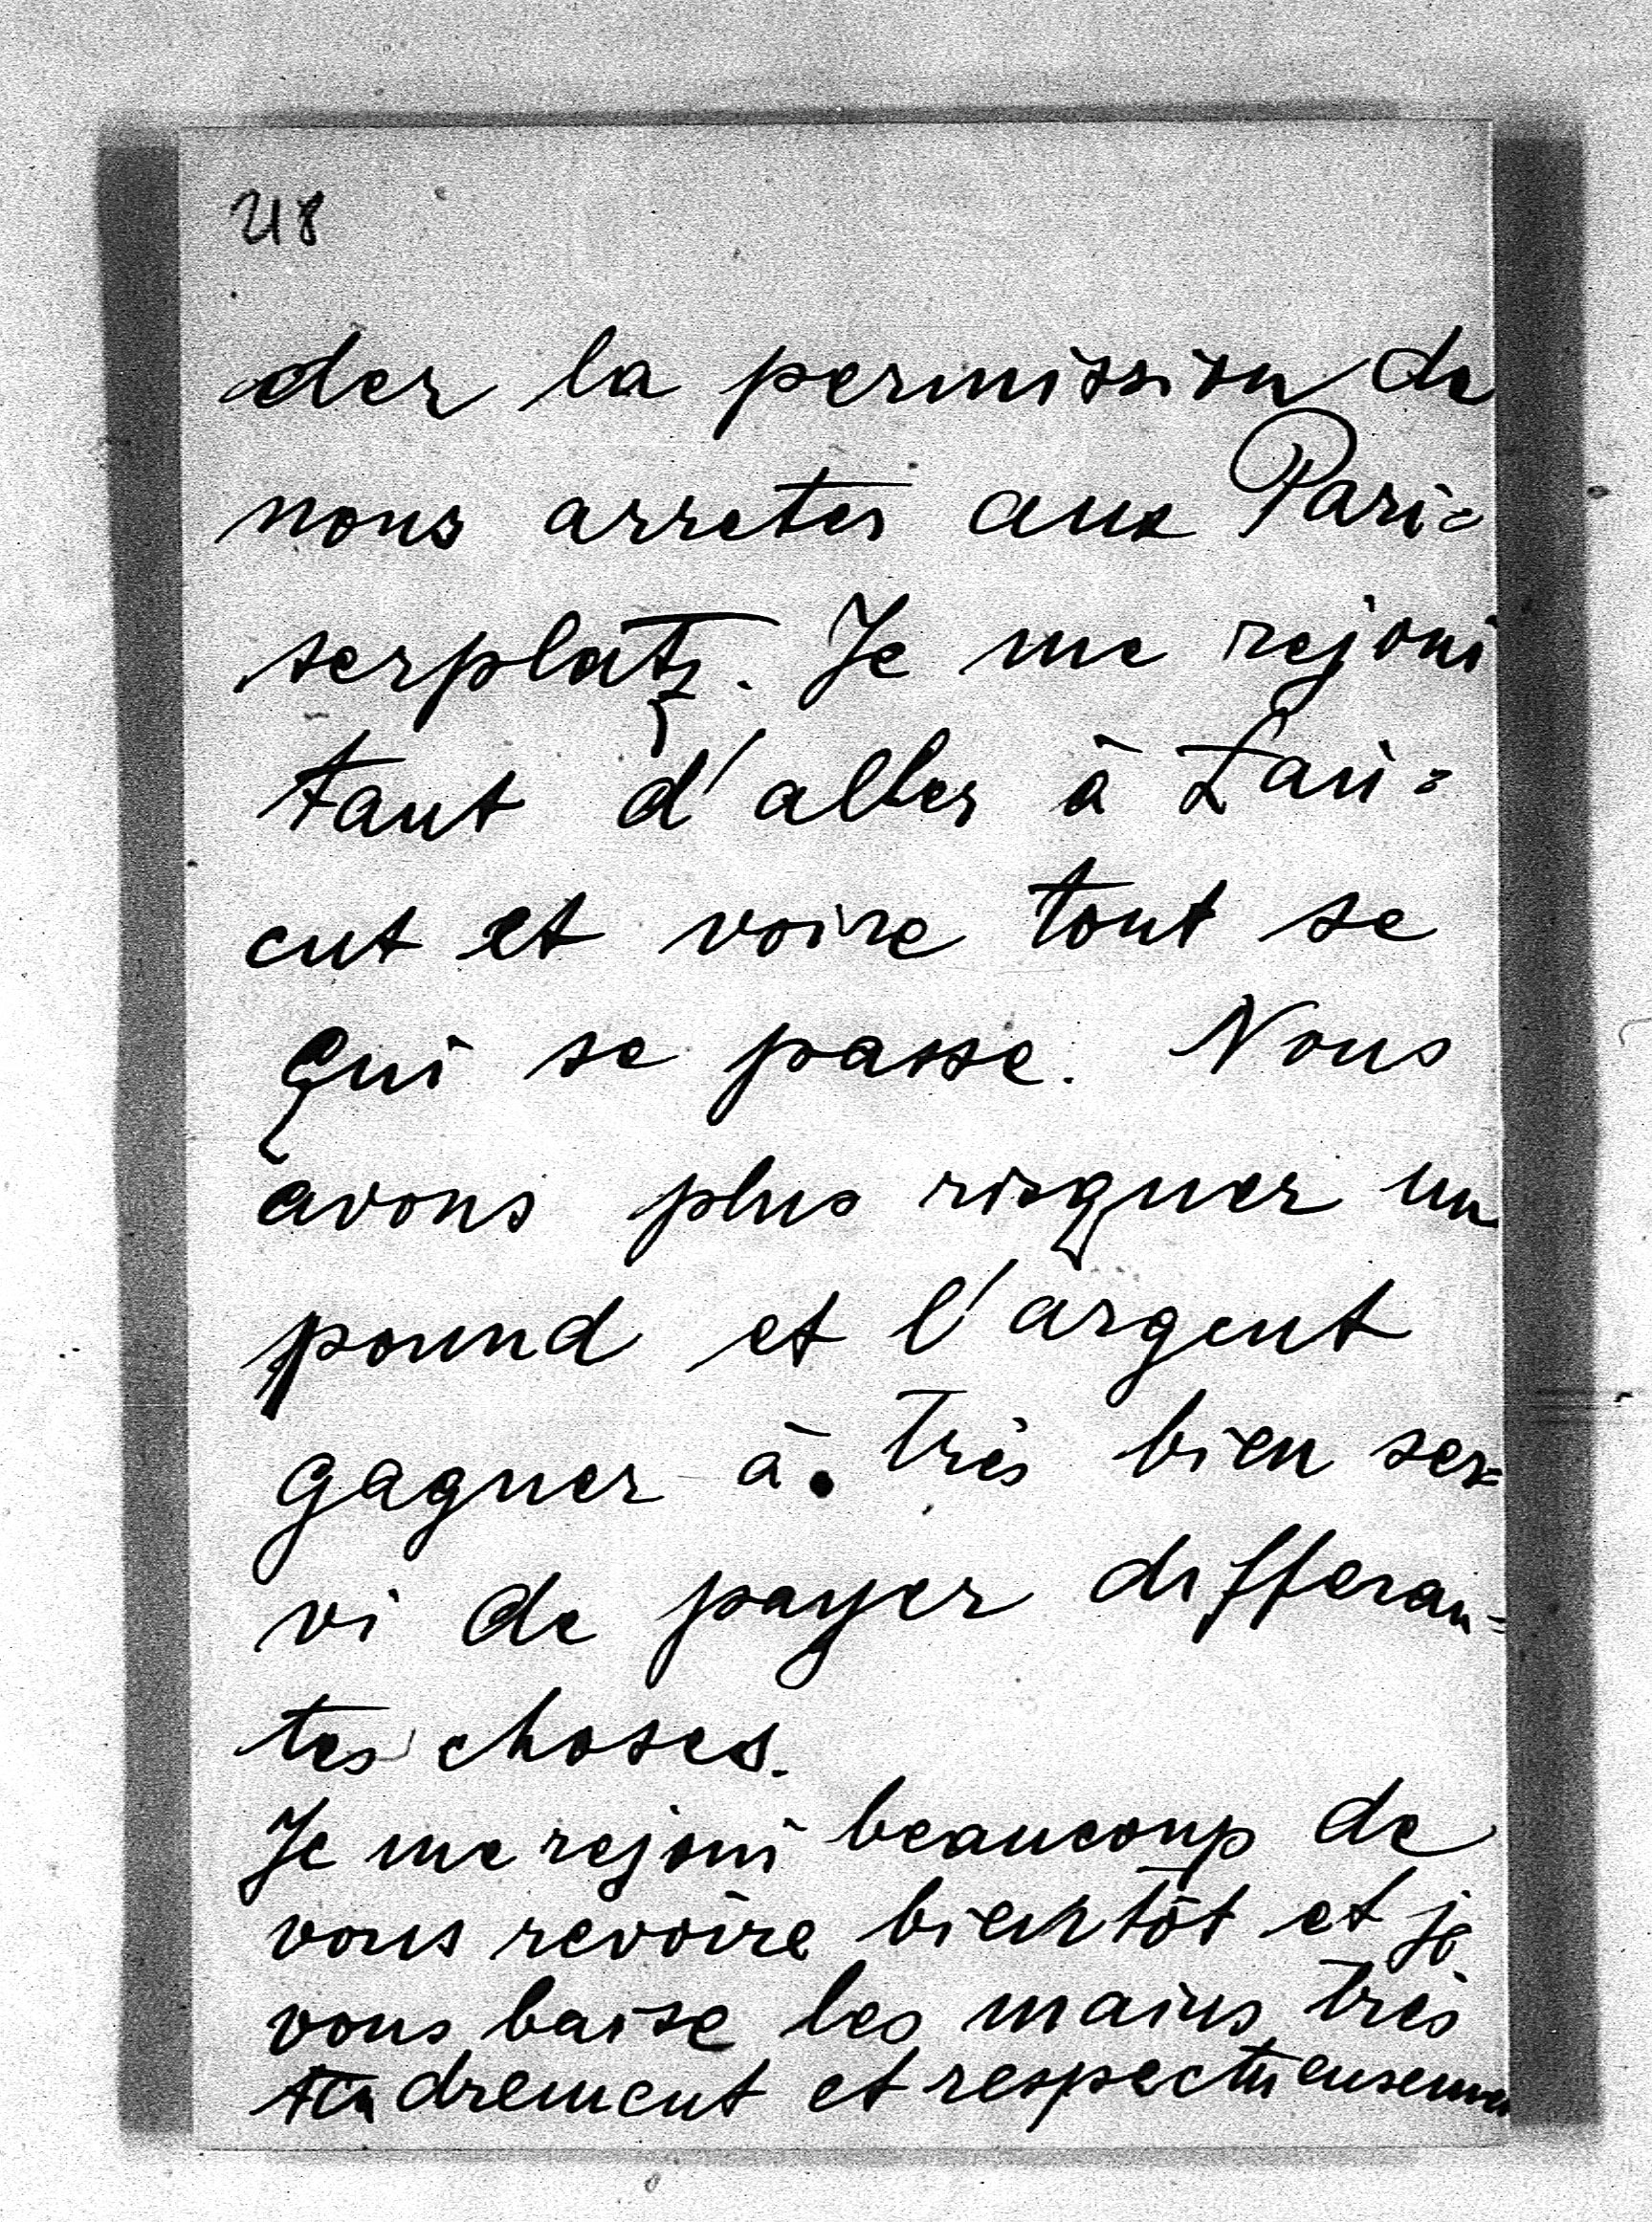 218
der la permission de
nous arreter aux Pari=
serplatz. Je me rejoui
tant d'aller à Lari=
cut et voire tout se
qui se passe. Nous
avons plus risquer un
pound et l'argent
gagner à. très bien ser=
vi de payer differan=
tes choses.
Je me rejoui beaucoup de
vous revoire bientôt et je
vous baise les mains très
tendrement et respectueuseme